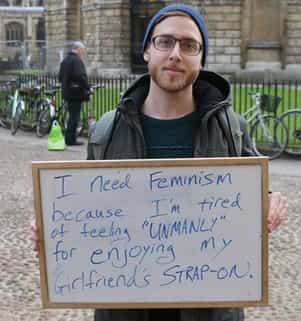 I need Feminism
because I'm tired
of feeling "UNMANLY"
for enjoying my
Girlfriend's STRAP-ON!